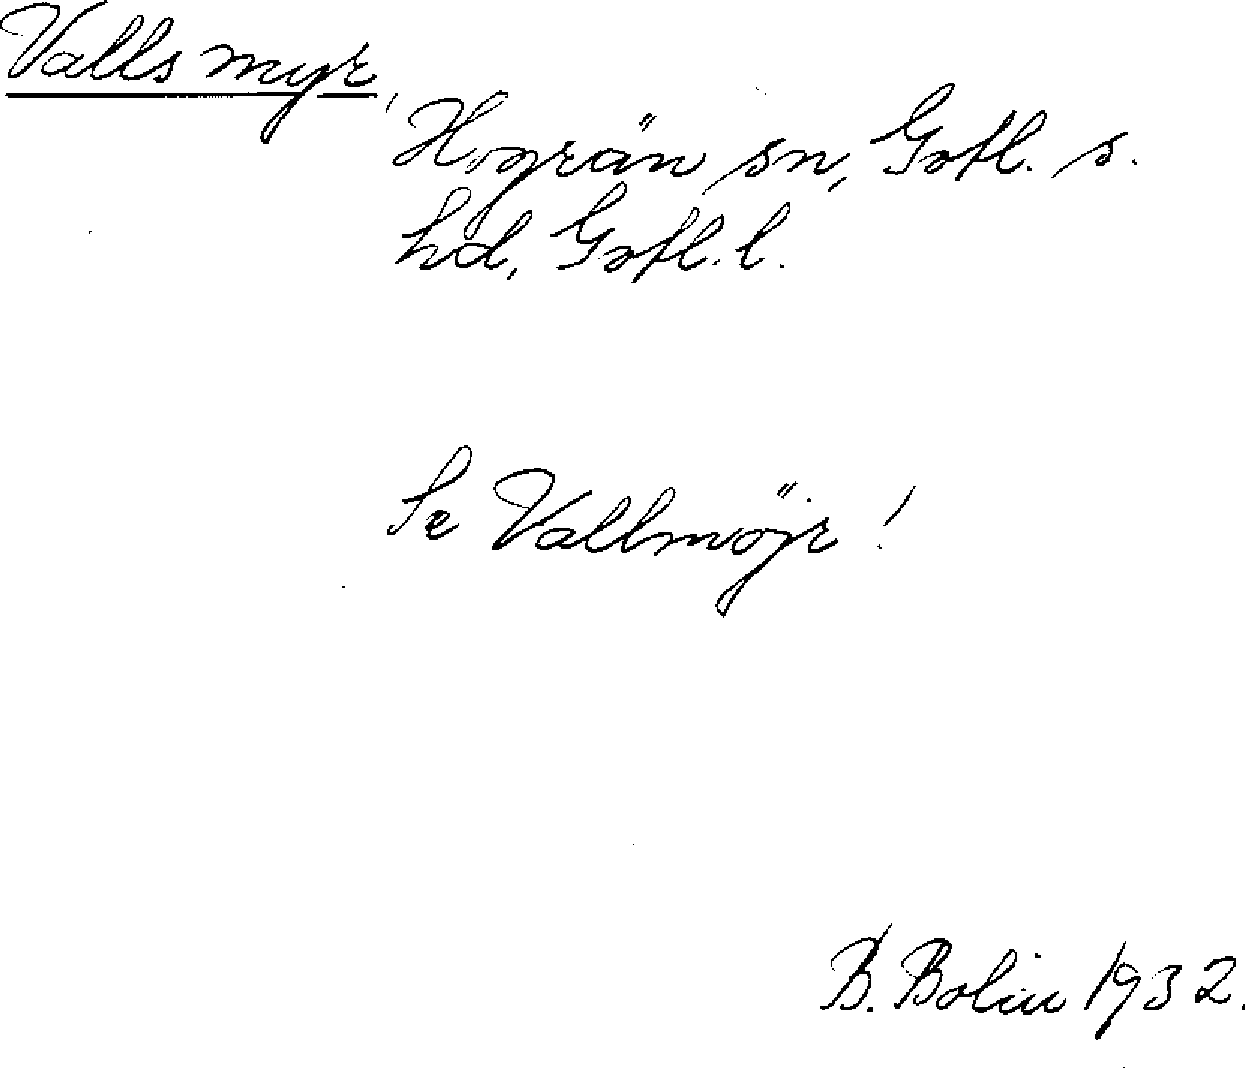 Valls myr,
Hogrän sn, Gotl. s.
hd, Gotl. l.
Se Vallmöjr!
B. Bolin 1932.